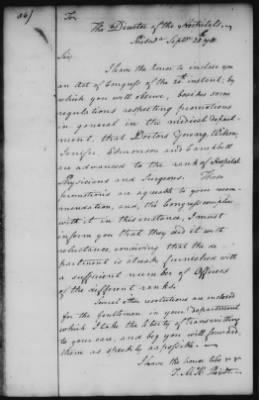 To
The Director of the Hospitals,
Philad.a Septem 28th 1781
Sir,
I have the honor to inclose you
an Act of Congress of the 20th instant; by
which you will observe, besides some
regulations respecting promotions
in general in the medical depart-
ment, that Doctors Young,
Jenifer, Edmonson and Campbell
are advanced to the rank of Hospital
Physicians and Surgeons. These
promotions are agreeable to your recom-
mendation, and, tho Congress complied
with it in this instance, I must
inform you that they did it with
reluctance, conceiving that the de-
partment is already furnished with
a sufficient number of Officers
of the different ranks.
Several other resolutions are inclosed
for the gentlemen in your department
which I take the liberty of transmitting
to your care, and beg you will forward
them as speedily as possible.
I have the honor to be &c
T. McK. Presidt.